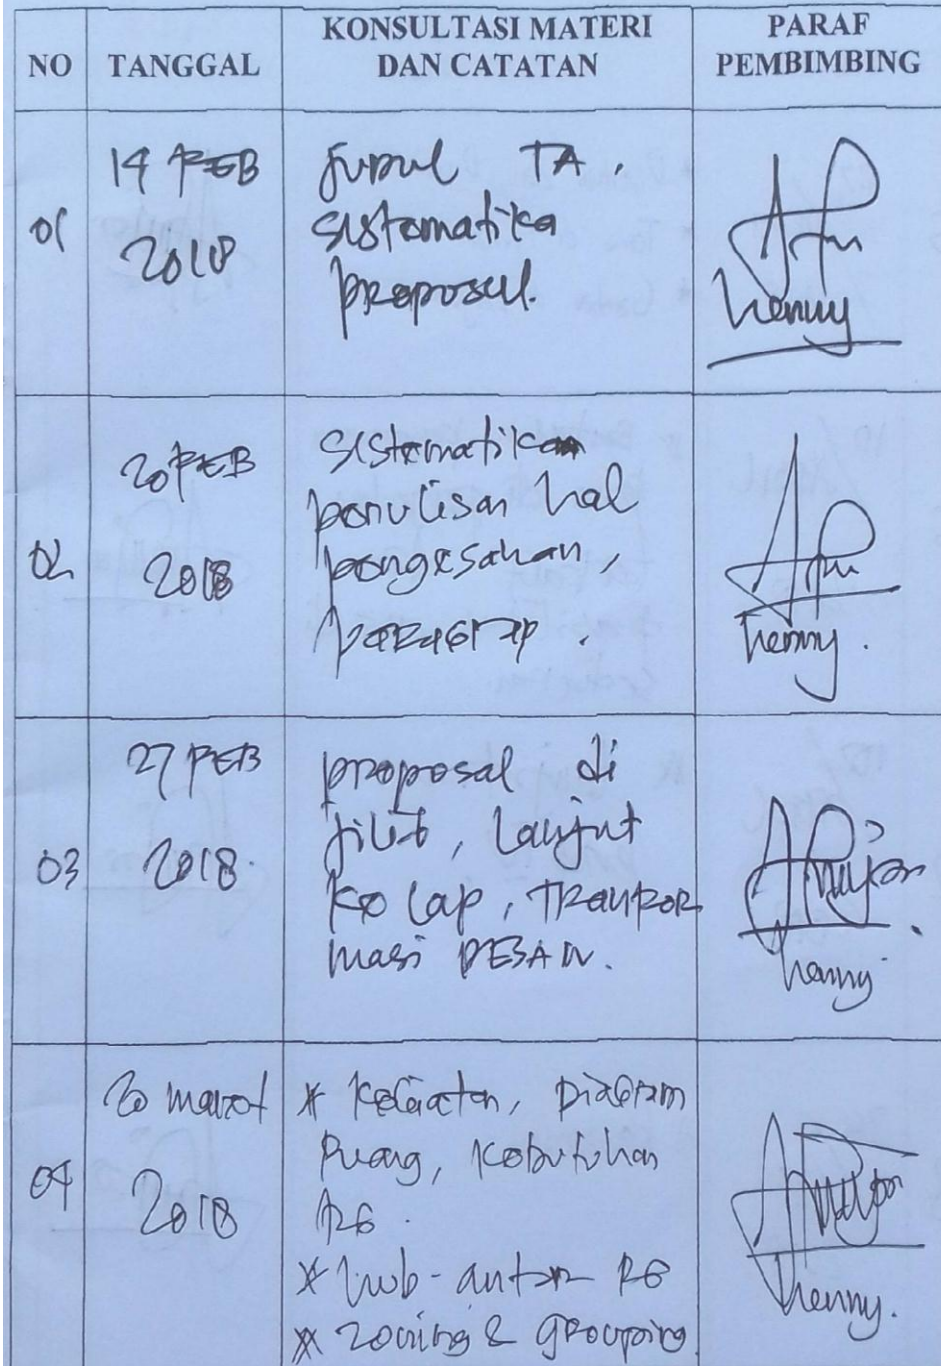 NO TANGGAL KONSULTASI MATERI DAN CATATAN PARAF PEMBIMBING
01
14 FEB
2018
Judul TA.
sistematika
proposal.
Henny
02
20 FEB
2018
sistematika
penulisan hal
pengesahan,
paragrap.
Henny.
03
27 FEB
2018.
proposal di
jilid, lanjut
ke lap, Tranpor
masi DESAIN.
Henny
04
20 maret
2018
* Kegiatan, Diagram
Ruang, Kebutuhan
RG.
* hub-antar RG
* zoning & grouping
Henny.